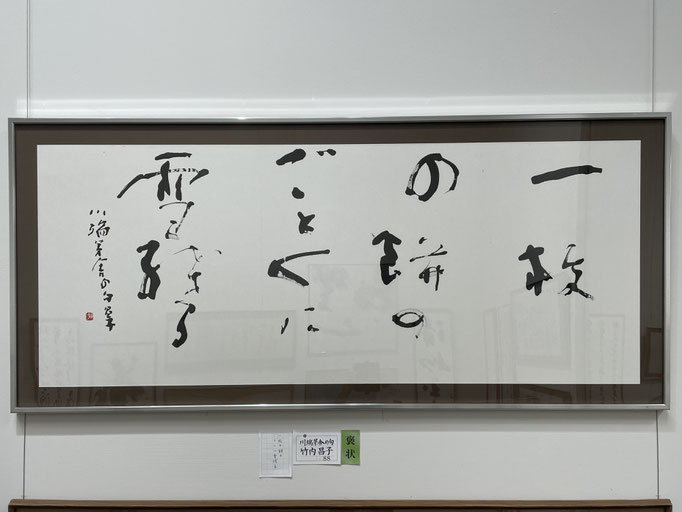 一枚
の餅の
ごとくに
雪残る
川端茅舎の句
川端茅舎の句
竹内昌子
88
褒状